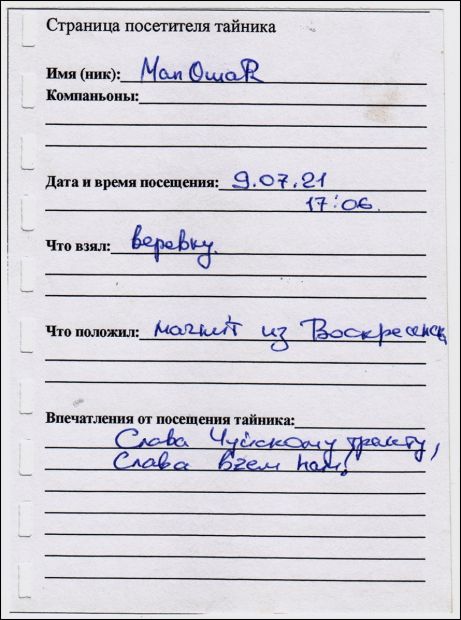 Страница посетителя тайника
Имя (ник): МапОшаR
Компаньоны:
Дата и время посещения: 9.07.21
17:06.
Что взял: веревку.
Что положил: магнит из Воскресенска
Впечатления от посещения тайника:
Слава Чуйскому тракту,
Слава всем нам!